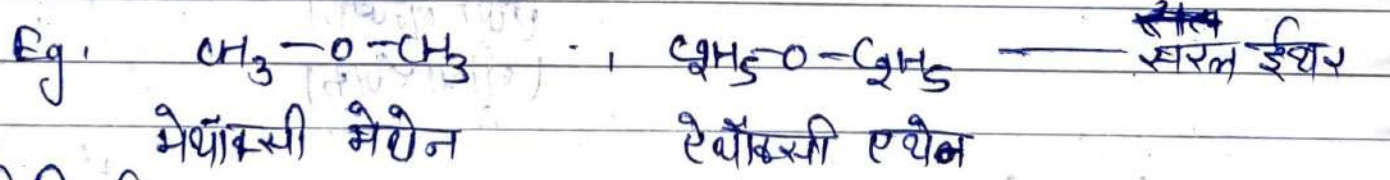 Eg. CH3-O-CH3 , C2H5-O-C2H5 — सरल ईथर
मेथॉक्सी मेथेन ऐथॉक्सी एथेन